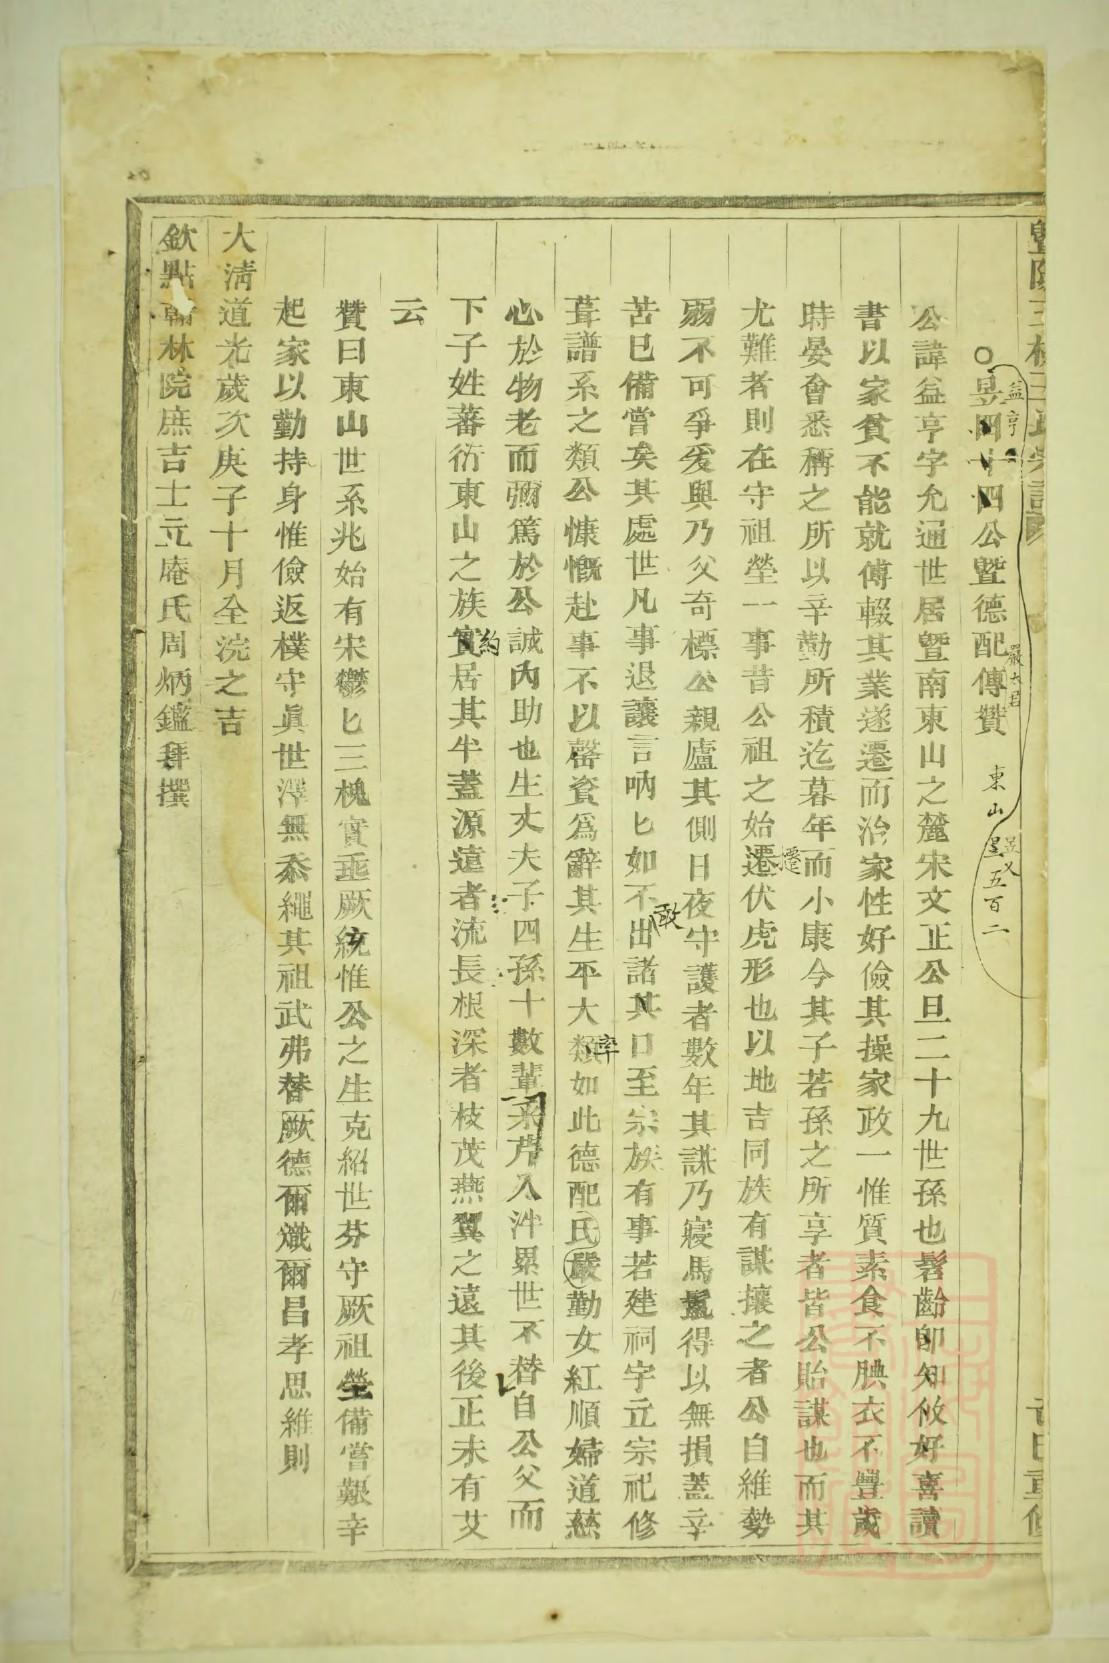 ○昱四十四公暨德配傳贊
益亨
嚴太君
東山昱五百二
公諱益亨字允通世居暨南東山之麓宋文正公旦二十九世孫也髫齡卽知攸好喜讀
書以家貧不能就傅輟其業遂遷而治家性好儉其操家政一惟質素食不腆衣不豐歲
時晏會悉稱之所以辛勤所積迄暮年而小康今其子若孫之所享者皆公貽謀也而其
尤難者則在守祖塋一事昔公祖之始遷伏虎形也以地吉同族有謀攘之者公自維勢
遷
弱不可爭爰與乃父奇標公親廬其側日夜守護者數年其謀乃寢馬鬣得以無損蓋辛
苦已備嘗矣其處世凡事退讓言吶匕如不出諸其口至宗族有事若建祠宇立宗祀修
敢
葺譜系之類公慷慨赴事不以罄資爲辭其生平大類如此德配氏嚴勤女紅順婦道慈
率
心於物老而彌篤於公誠內助也生丈夫子四孫十數輩采芹入泮累世不替自公父而
下子姓蕃衍東山之族實居其半蓋源遠者流長根深者枝茂燕翼之遠其後正未有艾
約
云
贊曰東山世系兆始有宋鬱匕三槐實垂厥統惟公之生克紹世芬守厥祖塋備嘗艱辛
起家以勤持身惟儉返樸守眞世澤無忝繩其祖武弗替厥德爾熾爾昌孝思維則
大淸道光歲次庚子十月全浣之吉
欽點翰林院庶吉士立庵氏周炳鑑拜撰